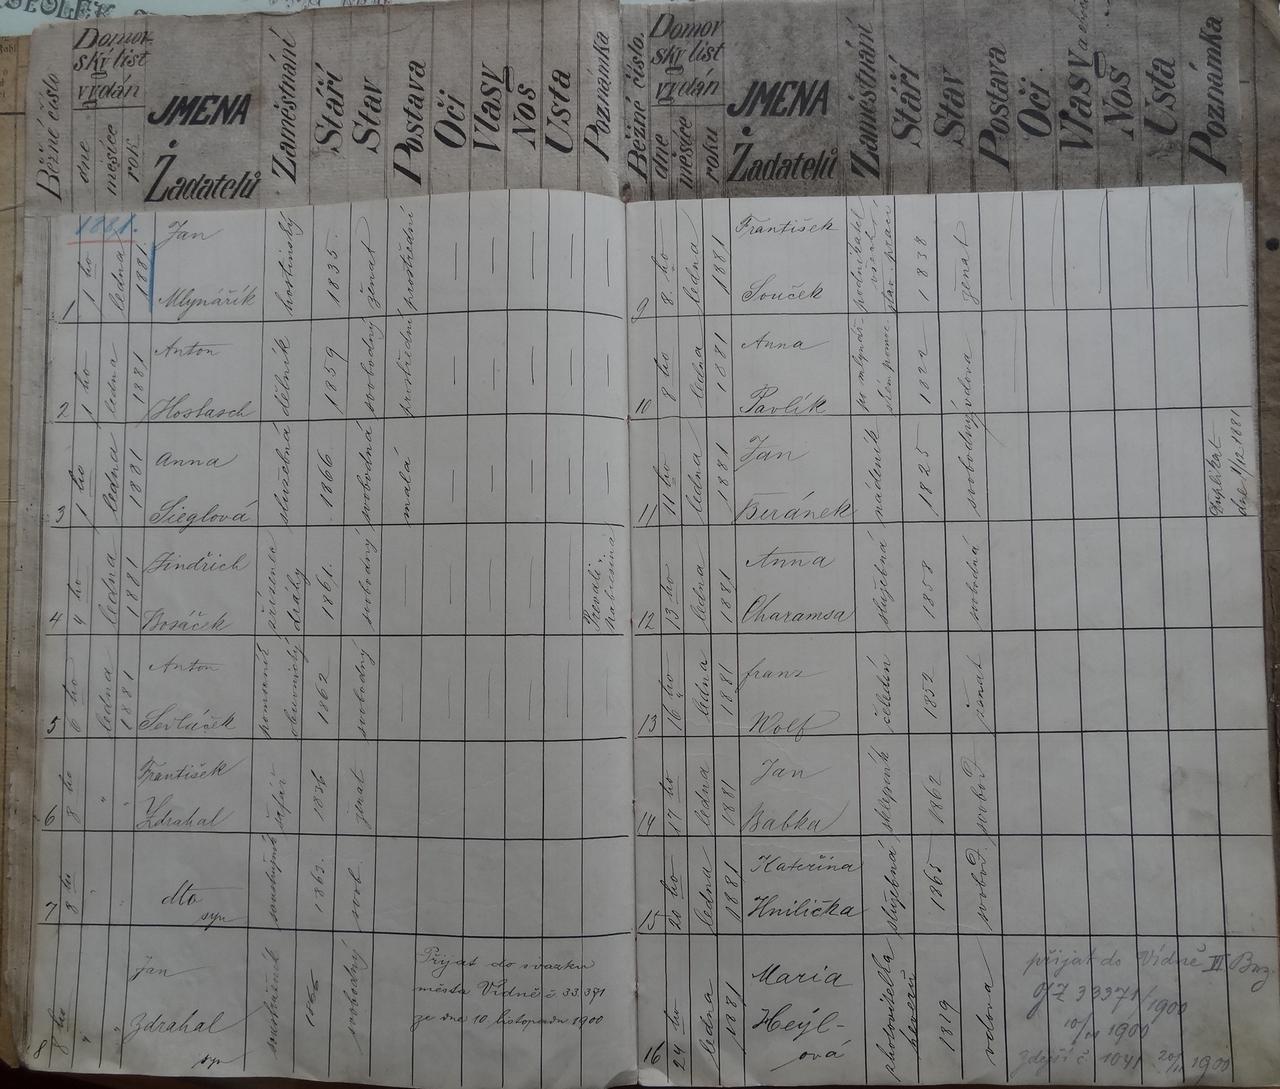 Běžné číslo
Domov-
ský list
vydán
dne
měsíce
rok.
JMENA
Žadatelů
Zaměstnání
Stáří
Stav
Postava
Oči
Vlasy
Nos
Usta
Poznámka
1881.
1
1 ho
ledna
1881
Jan
Mlynářík
hostinský
1835.
ženat
prostřední
2
1 ho
ledna
1881
Anton
Hostasch
dělník
1859
svobodný
prostřední
3
1 ho
ledna
1881
Anna
Sieglová
služebná
1866
svobodná
malá
4
4 ho
ledna
1881
Jindřich
Bosáček
dráhy
1861.
svobodný
5
6 ho
ledna
1881
Anton
1862
svobodný
6
8 ho
"
"
František
Zdrahal
1836
ženat
7
8 ho
"
"
dto
syn
1863.
svob.
8
8 ho
"
"
Jan
Zdrahal
syn
1866
svobodný
Přijat do svazku
města Vídně č 33.371
ze dne 10. listopadu 1900
Běžné číslo.
Domov
ský list
vydán
dne
měsíce
roku
JMENA
Žadatelů
Zaměstnání
Stáří
Stav
Postava
Oči.
Vlasy
Nos
Usta
Poznámka
9
8 ho
ledna
1881
František
Souček
podnikatel
stav. prací
1838
ženat
10
8 ho
ledna
1881
Anna
Pavlík
1822
vdova
11
11 ho
ledna
1881
Jan
Beránek
nádeník
1825
svobodný
Duplikat
dne 1/12 1881
12
13 ho
ledna
1881
Anna
Charamsa
služebná
1858
svobodná
13
16 ho
ledna
1881
franz
Wolf
čeledín
1852
ženat
14
17 ho
ledna
1881
Jan
Babka
sklepník
1862
svobod.
15
20 ho
ledna
1881
Kateřina
Hnilička
služebná
1865
svobod.
16
24 ho
ledna
1881
Maria
Heýl-
ová
1819
vdova
přijat do Vídně II Bez.
GZ 33371/1900
10/11 1900
zdejší č 1041 20/11 1900